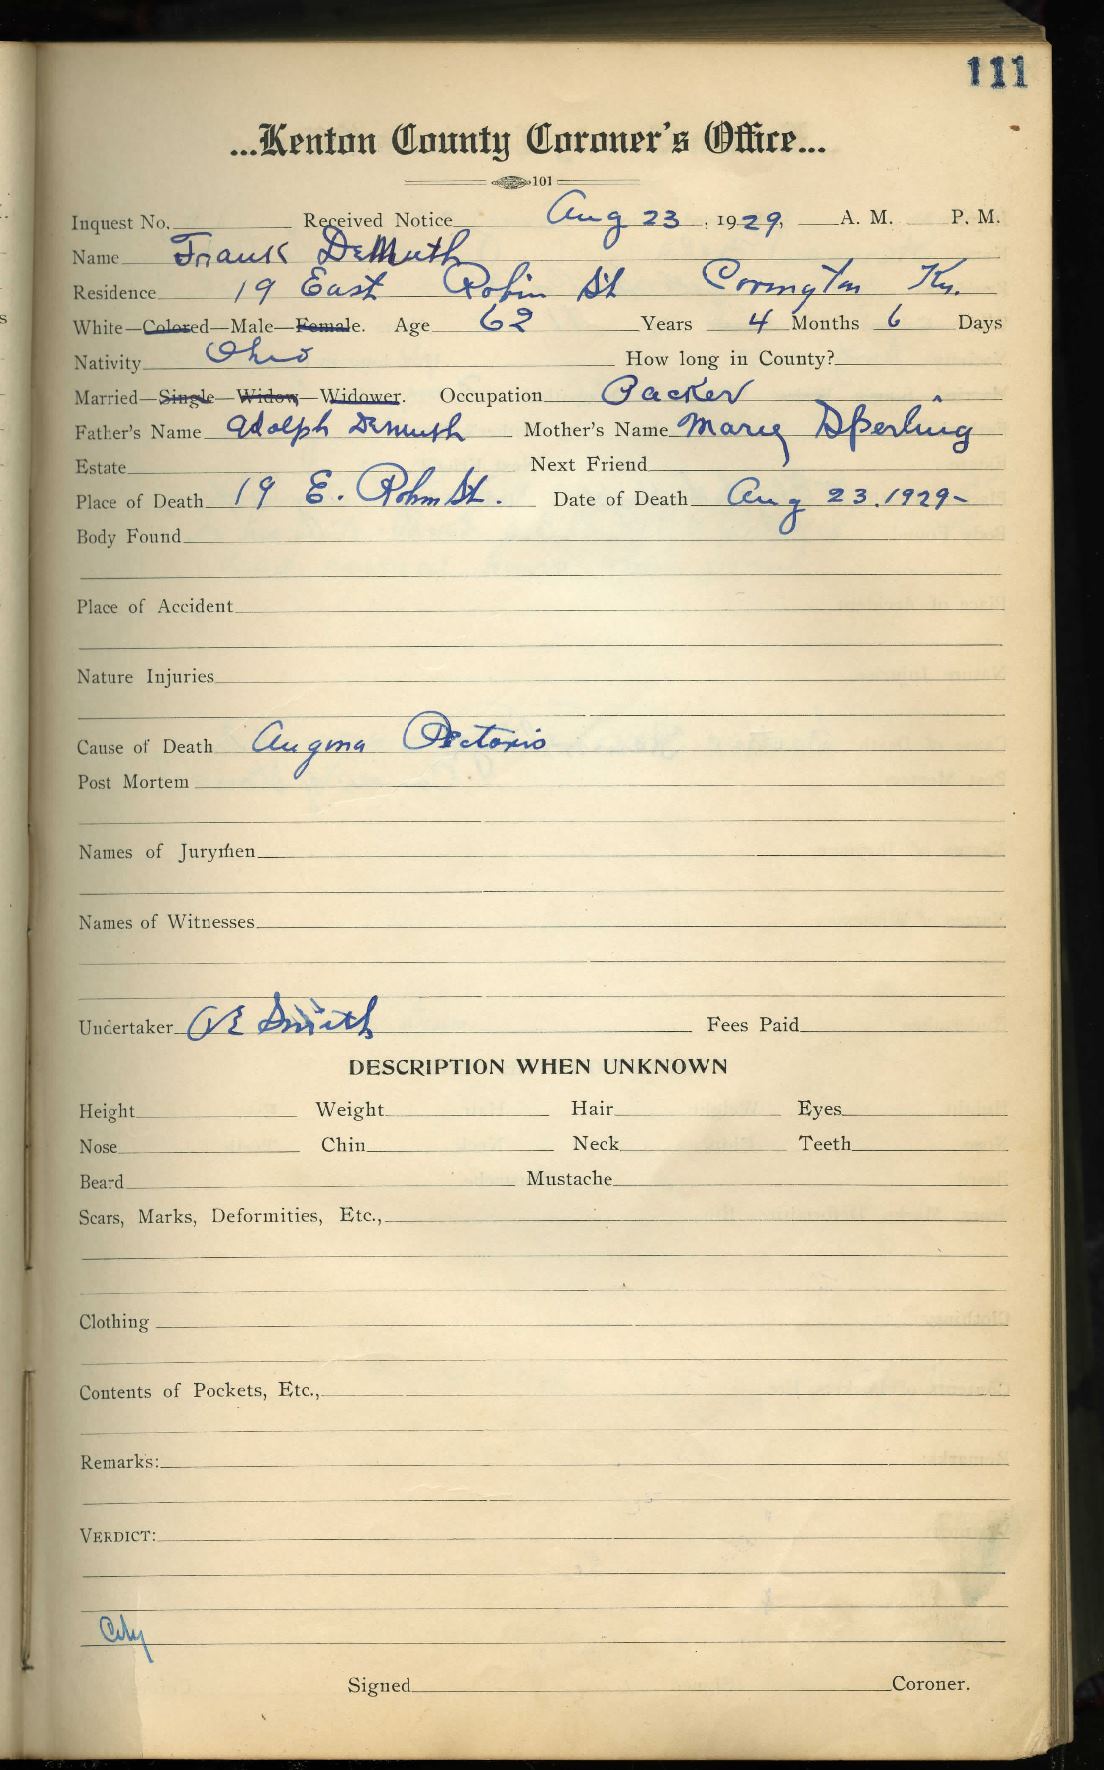 111
...Kenton County Coroner's Office...
101
Inquest No. Received Notice Aug 23, 1929, A. M. P. M.
Name Frank DeMuth
Residence 19 East Robin St Covington Ky.
White—Colored—Male—Female. Age 62 Years 4 Months 6 Days
Nativity Ohio How long in County?
Married—Single—Widow—Widower. Occupation Packer
Father's Name Adolph Demuth Mother's Name Mary Sperling
Estate Next Friend
Place of Death 19 E. Robin St. Date of Death Aug 23. 1929-
Body Found
Place of Accident
Nature Injuries
Cause of Death Angina Pectoris
Post Mortem
Names of Jurymen
Names of Witnesses
Undertaker Smith Fees Paid
DESCRIPTION WHEN UNKNOWN
Height Weight Hair Eyes
Nose Chin Neck Teeth
Beard Mustache
Scars, Marks, Deformities, Etc.,
Clothing
Contents of Pockets, Etc.,
Remarks:
VERDICT:
City
Signed Coroner.